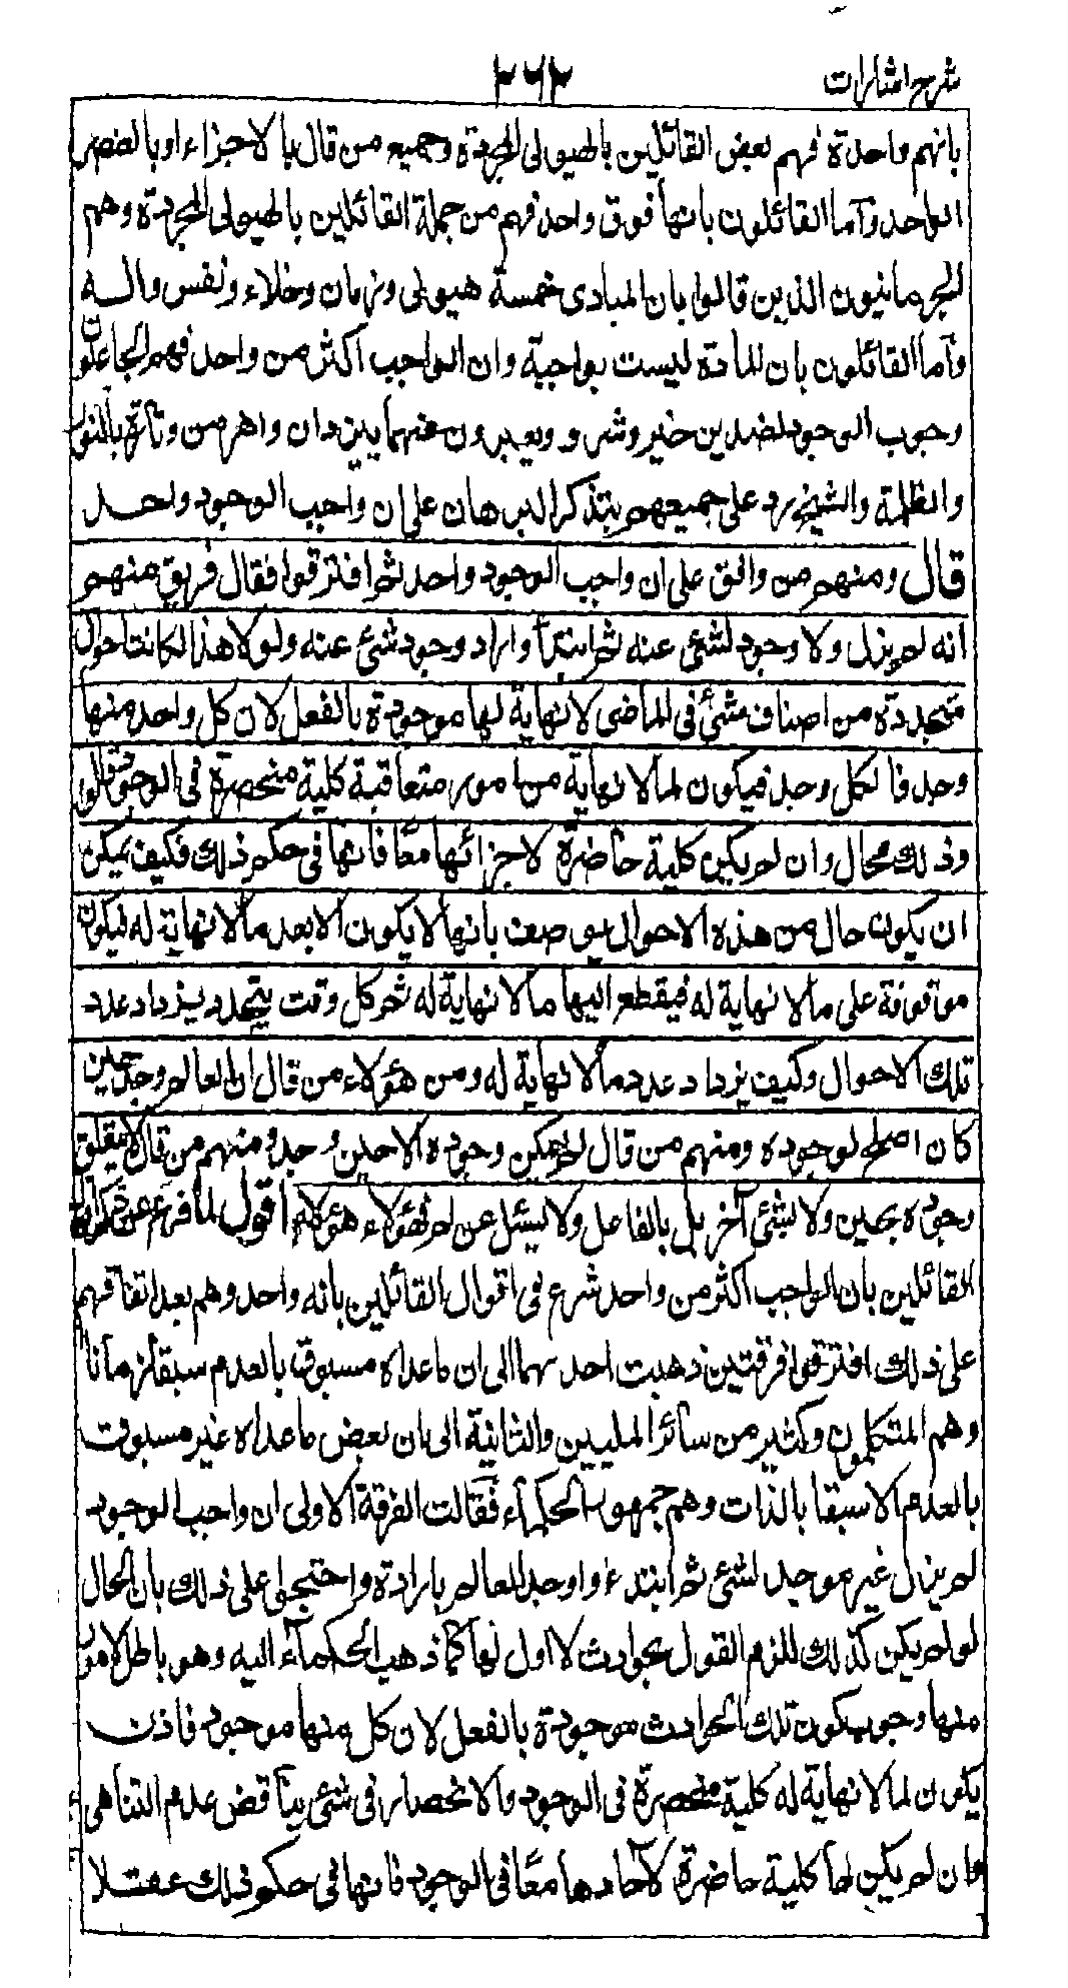 شرح اشارات
٣٦٢
بانهم واحدة فهم بعض القائلين بالهيولى المجردة وجميع من قال بالاجزاء او بالعنصر
الواحد وأما القائلون بانها فوق واحد فهم من جملة القائلين بالهيولى المجردة وهم
الحرمانيون الذين قالوا بان المبادى خمسة هيولى وزمان وخلاء ونفس واله
وأما القائلون بان المادة ليست بواجبة وان الواجب اكثر من واحد فهم الجاعلون
وجوب الوجود لضدين خير وشر ويعبرون عنهما بيزدان واهرمن وتارة بالنور
والظلمة والشيخ يرد على جميعهم بتذكر البرهان على ان واجب الوجود واحد
قال ومنهم من وافق على ان واجب الوجود واحد ثم افترقوا فقال فريق منهم
انه لم يزل ولا وجود لشئ عنه ثم ابتدأ واراد وجود شئ عنه ولولا هذا لكانت احوال
متجددة من اصناف شئ فى الماضى لا نهاية لها موجودة بالفعل لان كل واحد منها
وجد فالكل وجد فيكون لما لا نهاية من امور متعاقبة كلية منحصرة فى الوجود قالوا
وذلك محال وان لم يكن كلية حاضرة لاجزائها معًا فانها فى حكم ذلك فكيف يمكن
ان يكون حال من هذه الاحوال يوصف بانها لا يكون الا بعد ما لا نهاية له فيكون
موقوفة على ما لا نهاية له فيقطع اليها ما لا نهاية له ثم كل وقت يتجدد يزداد عدد
تلك الاحوال وكيف يزداد عدد ما لا نهاية له ومن هؤلاء من قال ان العالم وجد حين
كان اصلح لوجوده ومنهم من قال لم يمكن وجوده الا حين وجد ومنهم من قال لا يتعلق
وجوده بحين ولا بشئ آخر بل بالفاعل ولا يسئل عن لم فهؤلاء هؤلاء اقول لما فرغ عن ذكر
القائلين بان الواجب اكثر من واحد شرع فى اقوال القائلين بانه واحد وهم بعد اتفاقهم
على ذلك افترقوا فرقتين ذهبت احديهما الى ان ما عداه مسبوق بالعدم سبقا زمانا
وهم المتكلمون وكثير من سائر المليين والثانية الى بان بعض ما عداه غير مسبوقت
بالعدم الا سبقا بالذات وهم جمهور الحكمآء فقالت الفرقة الاولى ان واجب الوجود
لم يزل غير موجد لشئ ثم ابتدء واوجد للعالم بارادة واحتجوا على ذلك بان الحال
لو لم يكن كذلك للزم القول بحوادث لا اول لها كما ذهب الحكمآء اليه وهو باطل لامور
منها وجوب كون تلك الحوادث موجودة بالفعل لان كل منها موجود فاذن
يكون لما لا نهاية له كلية منحصرة فى الوجود والانحصار فى شئ يناقض عدم التناهى
وان لم يكن لها كلية حاضرة لآحادها معًا فى الوجود فانها فى حكم ذلك عقلا